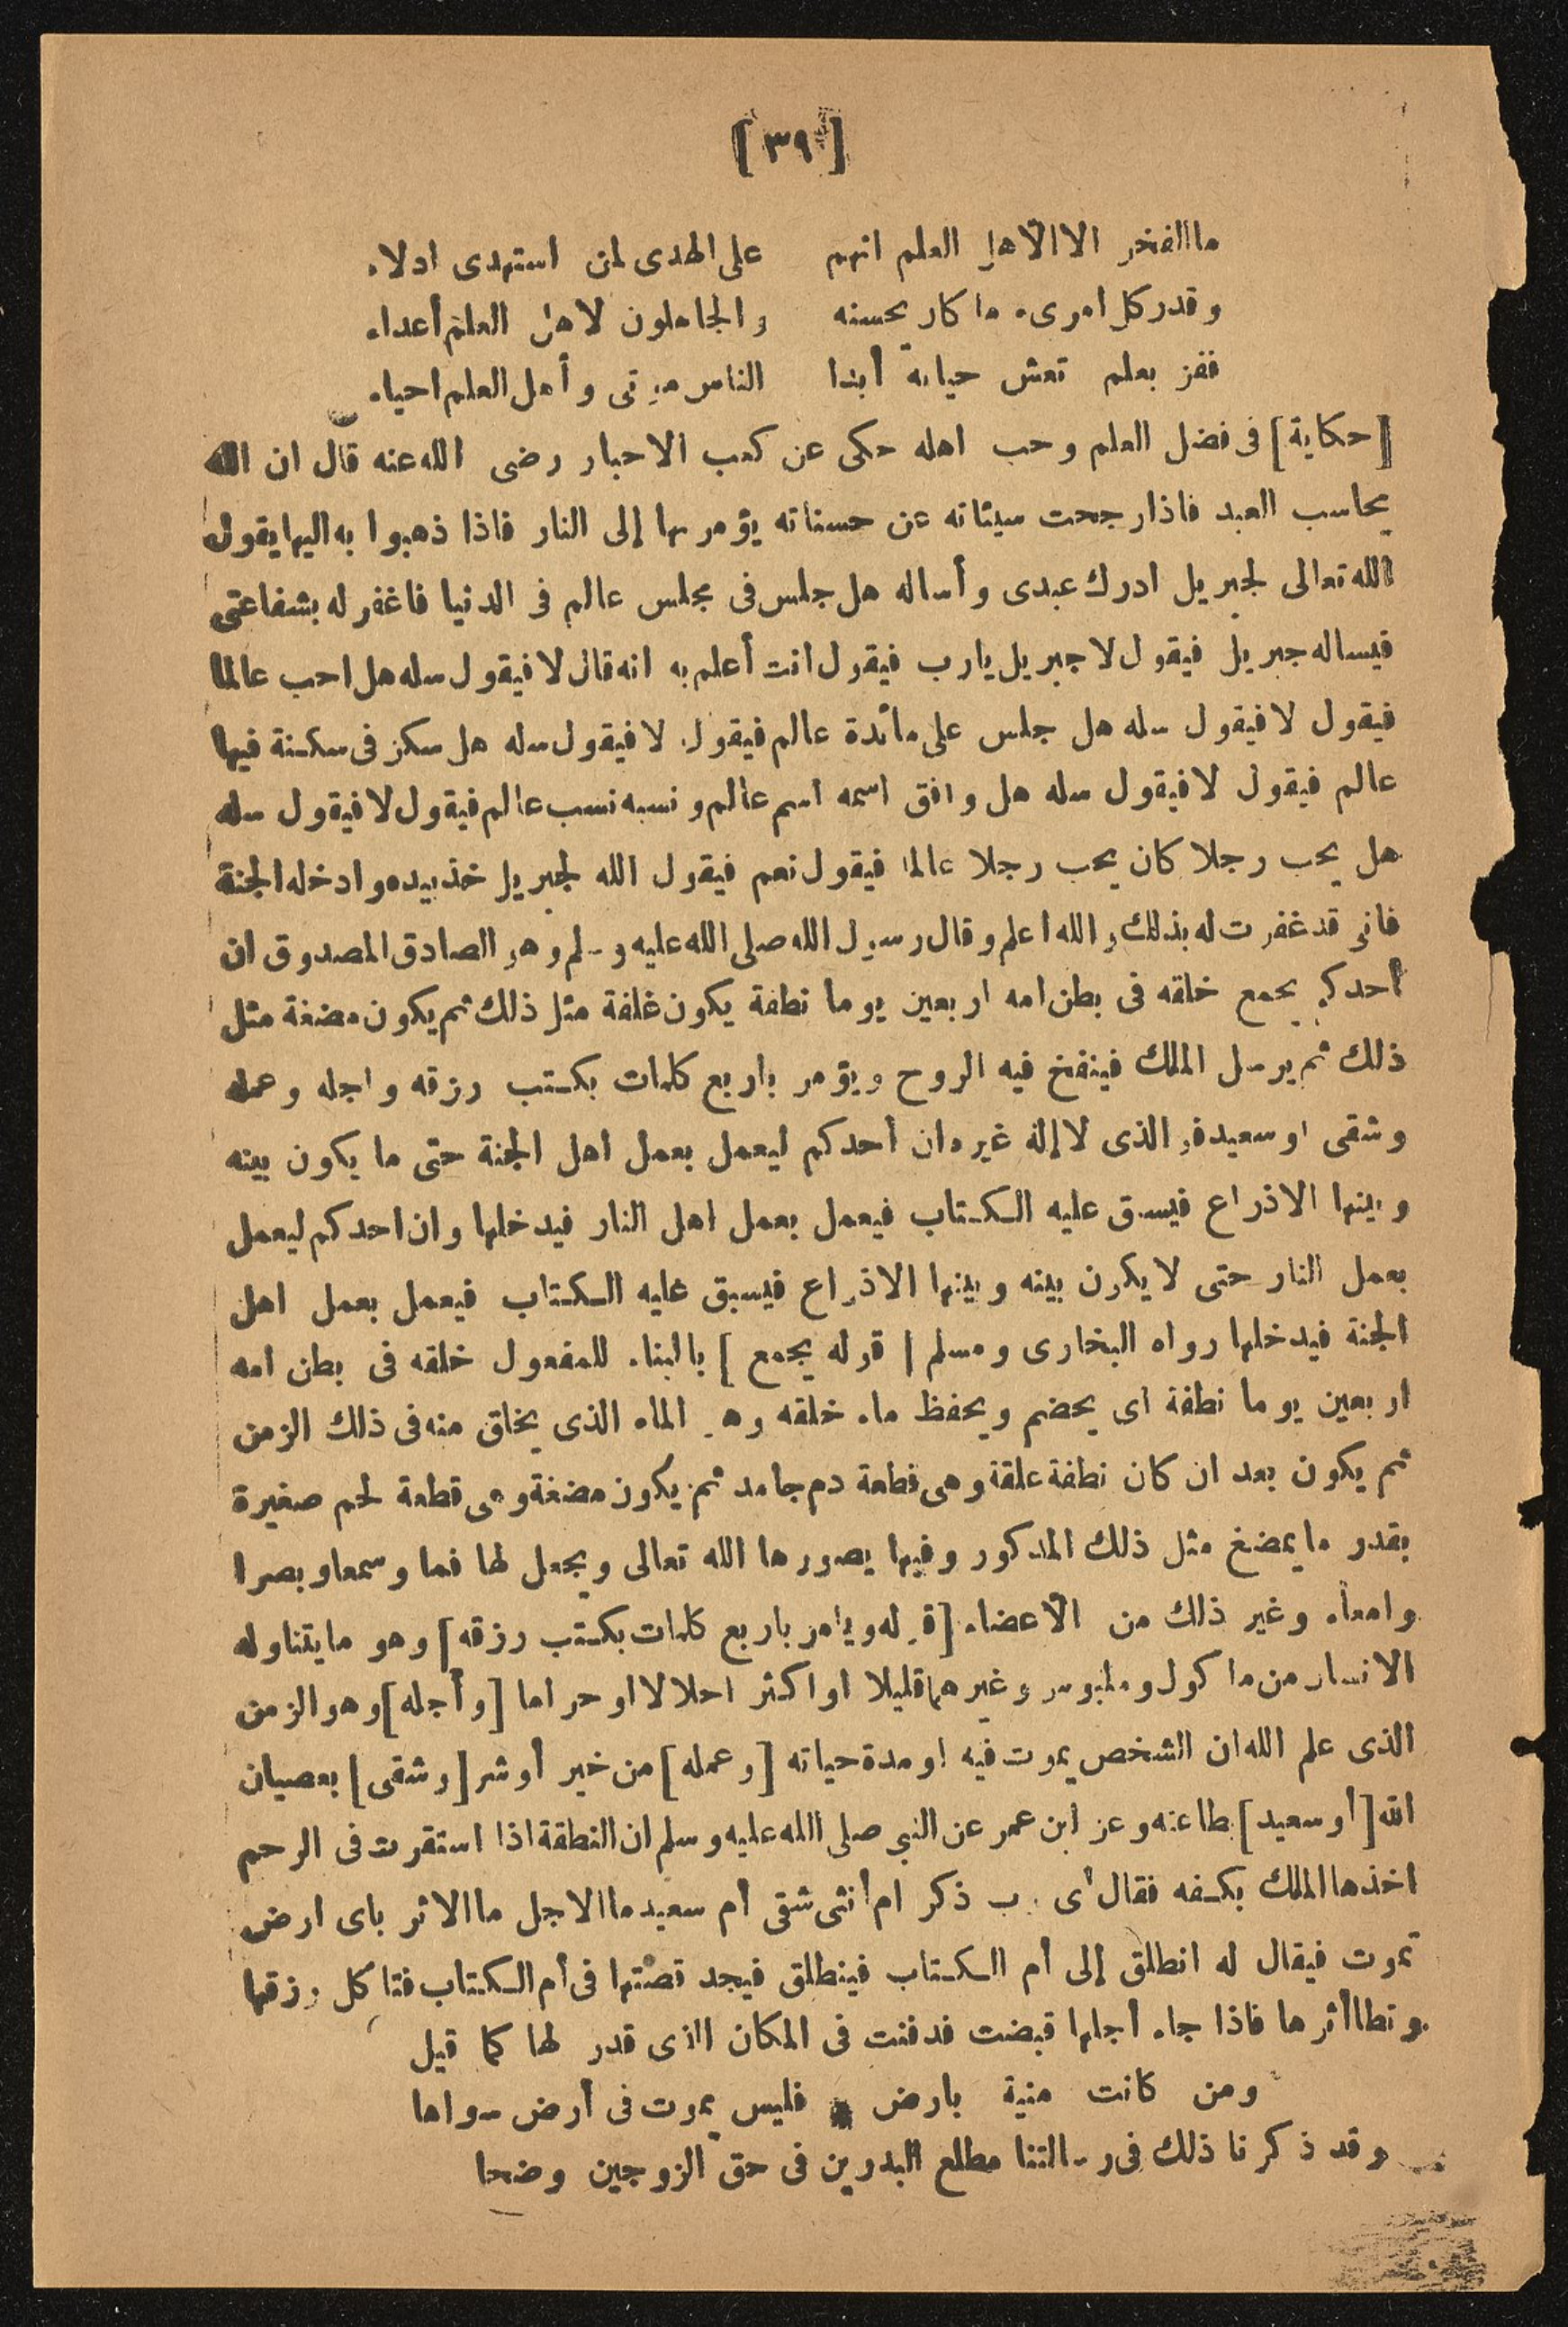 [٣٩]
ما الفخر الا الاهل العلم انهم على الهدى لمن استهدى ادلاء
وقدر كل امرىء ما كان يحسنه والجاهلون لاهل العلم أعداء
ففز بعلم تعش حياته أبدا الناس موتى وأهل العلم احياء
[حكاية] فى فضل العلم وحب اهله حكى عن كعب الاحبار رضى الله عنه قال ان الله
يحاسب العبد فاذا رجحت سيئاته عن حسناته يؤمر بها إلى النار فاذا ذهبوا به اليها يقول
الله تعالى لجبريل ادرك عبدى وأساله هل جلس فى مجلس عالم فى الدنيا فاغفر له بشفاعتى
فيساله جبريل فيقول لا جبريل يارب فيقول انت أعلم به انه قال لا فيقول سله هل احب عالما
فيقول لا فيقول سله هل جلس على مائدة عالم فيقول لا فيقول سله هل سكن فى سكنة فيها
عالم فيقول لا فيقول سله هل وافق اسمه اسم عالم و نسبه نسب عالم فيقول لا فيقول سله
هل يحب رجلا كان يحب رجلا عالما فيقول نعم فيقول الله لجبريل خذ بيده وادخله الجنة
فانى قد غفرت له بذلك والله أعلم وقال رسول الله صلى الله عليه وسلم وهو الصادق المصدوق ان
أحدكم يجمع خلقه فى بطن امه اربعين يوما نطفة يكون غلفة مثل ذلك ثم يكون مضغة مثل
ذلك ثم يرسل الملك فينفخ فيه الروح ويؤمر باربع كلمات بكتب رزقه واجله وعمله
وشقى او سعيد فو الذى لا إله غيره ان أحدكم ليعمل بعمل اهل الجنة حتى ما يكون بينه
وبينها الاذراع فيسبق عليه الكتاب فيعمل بعمل اهل النار فيدخلها وان احدكم ليعمل
بعمل النار حتى لا يكون بينه وبينها الاذراع فيسبق عليه الكتاب فيعمل بعمل اهل
الجنة فيدخلها رواه البخارى ومسلم [قوله يجمع] بالبناء للمفعول خلقه فى بطن امه
اربعين يوما نطفة اى يحضم ويحفظ ماء خلقه وهو الماء الذى يخلق منه فى ذلك الزمن
ثم يكون بعد ان كان نطفة علقة وهى قطعة دم جامد ثم يكون مضغة وهى قطعة لحم صغيرة
بقدو ما يمضغ مثل ذلك المذكور وفيها يصورها الله تعالى ويجعل لها فما وسمعا وبصرا
وامعاء وغير ذلك من الاعضاء [قوله ويامر باربع كلمات بكتب رزقه] وهو ما يتناوله
الانسان من ما كول وملبوس وغيرهما قليلا او اكثر احلالا او حراما [وأجله] وهو الزمن
الذى علم الله ان الشخص يموت فيه او مدة حياته [وعمله] من خير أو شر [وشقى] بعصيان
الله [أو سعيد] بطاعته وعن ابن عمر عن النبى صلى الله عليه وسلم ان النطقة اذا استقرت فى الرحم
اخذها الملك بكفه فقال أى رب ذكر ام أنثى شقى أم سعيد ما الاجل ما الاثر باى ارض
تموت فيقال له انطلق إلى أم الكتاب فينطلق فيجد قصتها فى أم الكتاب فتا كل رزقها
وتطا أثرها فاذا جاء أجلها قبضت فدفنت فى المكان الذى قدر لها كما قيل
ومن كانت منية بارض * فليس يموت فى أرض سواها
وقد ذكرنا ذلك فى رسالتنا مطلع البدرين فى حق الزوجين وضحا